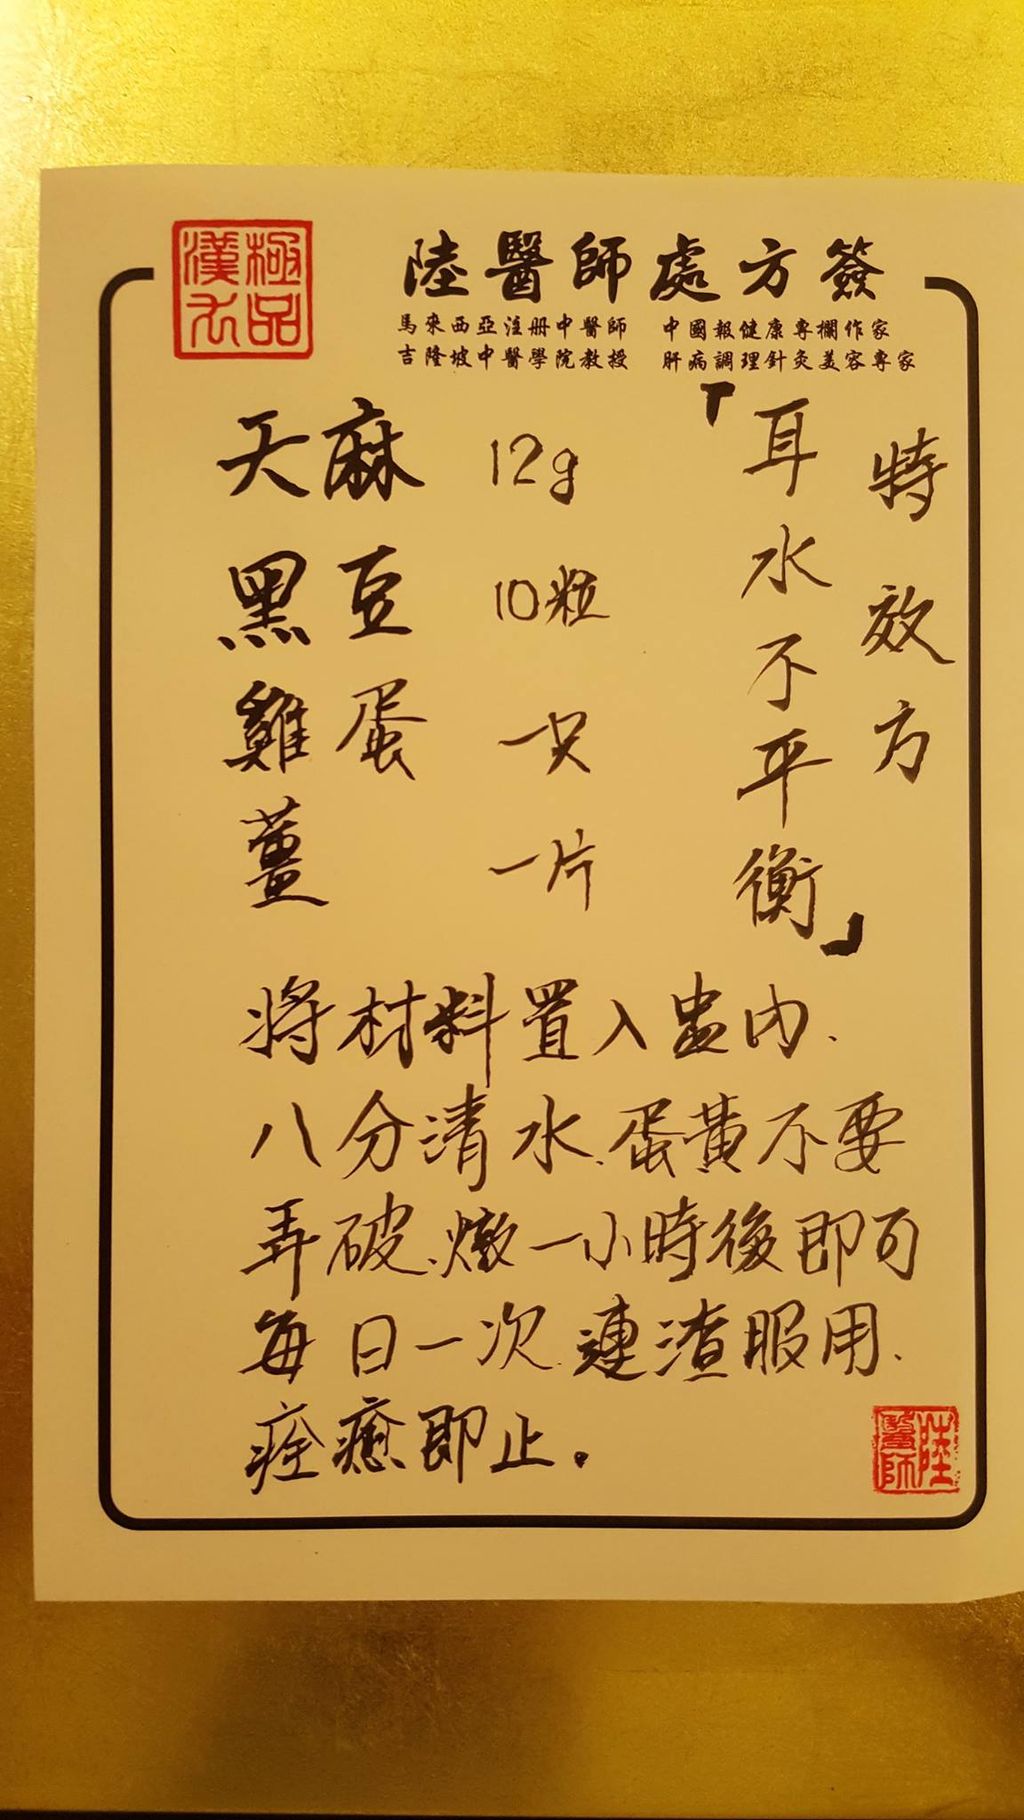 極品
漢方
陸醫師處方簽
馬來西亞注册中醫師 中國報健康專欄作家
吉隆坡中醫學院教授 肝病調理針灸美容專家
特效方
「耳水不平衡」
天麻 12g
黑豆 10粒
雞蛋 一只
薑 一片
將材料置入盅内、
八分清水、蛋黃不要
弄破、燉一小時後即可
每日一次、連渣服用、
痊癒即止。
陸
醫師